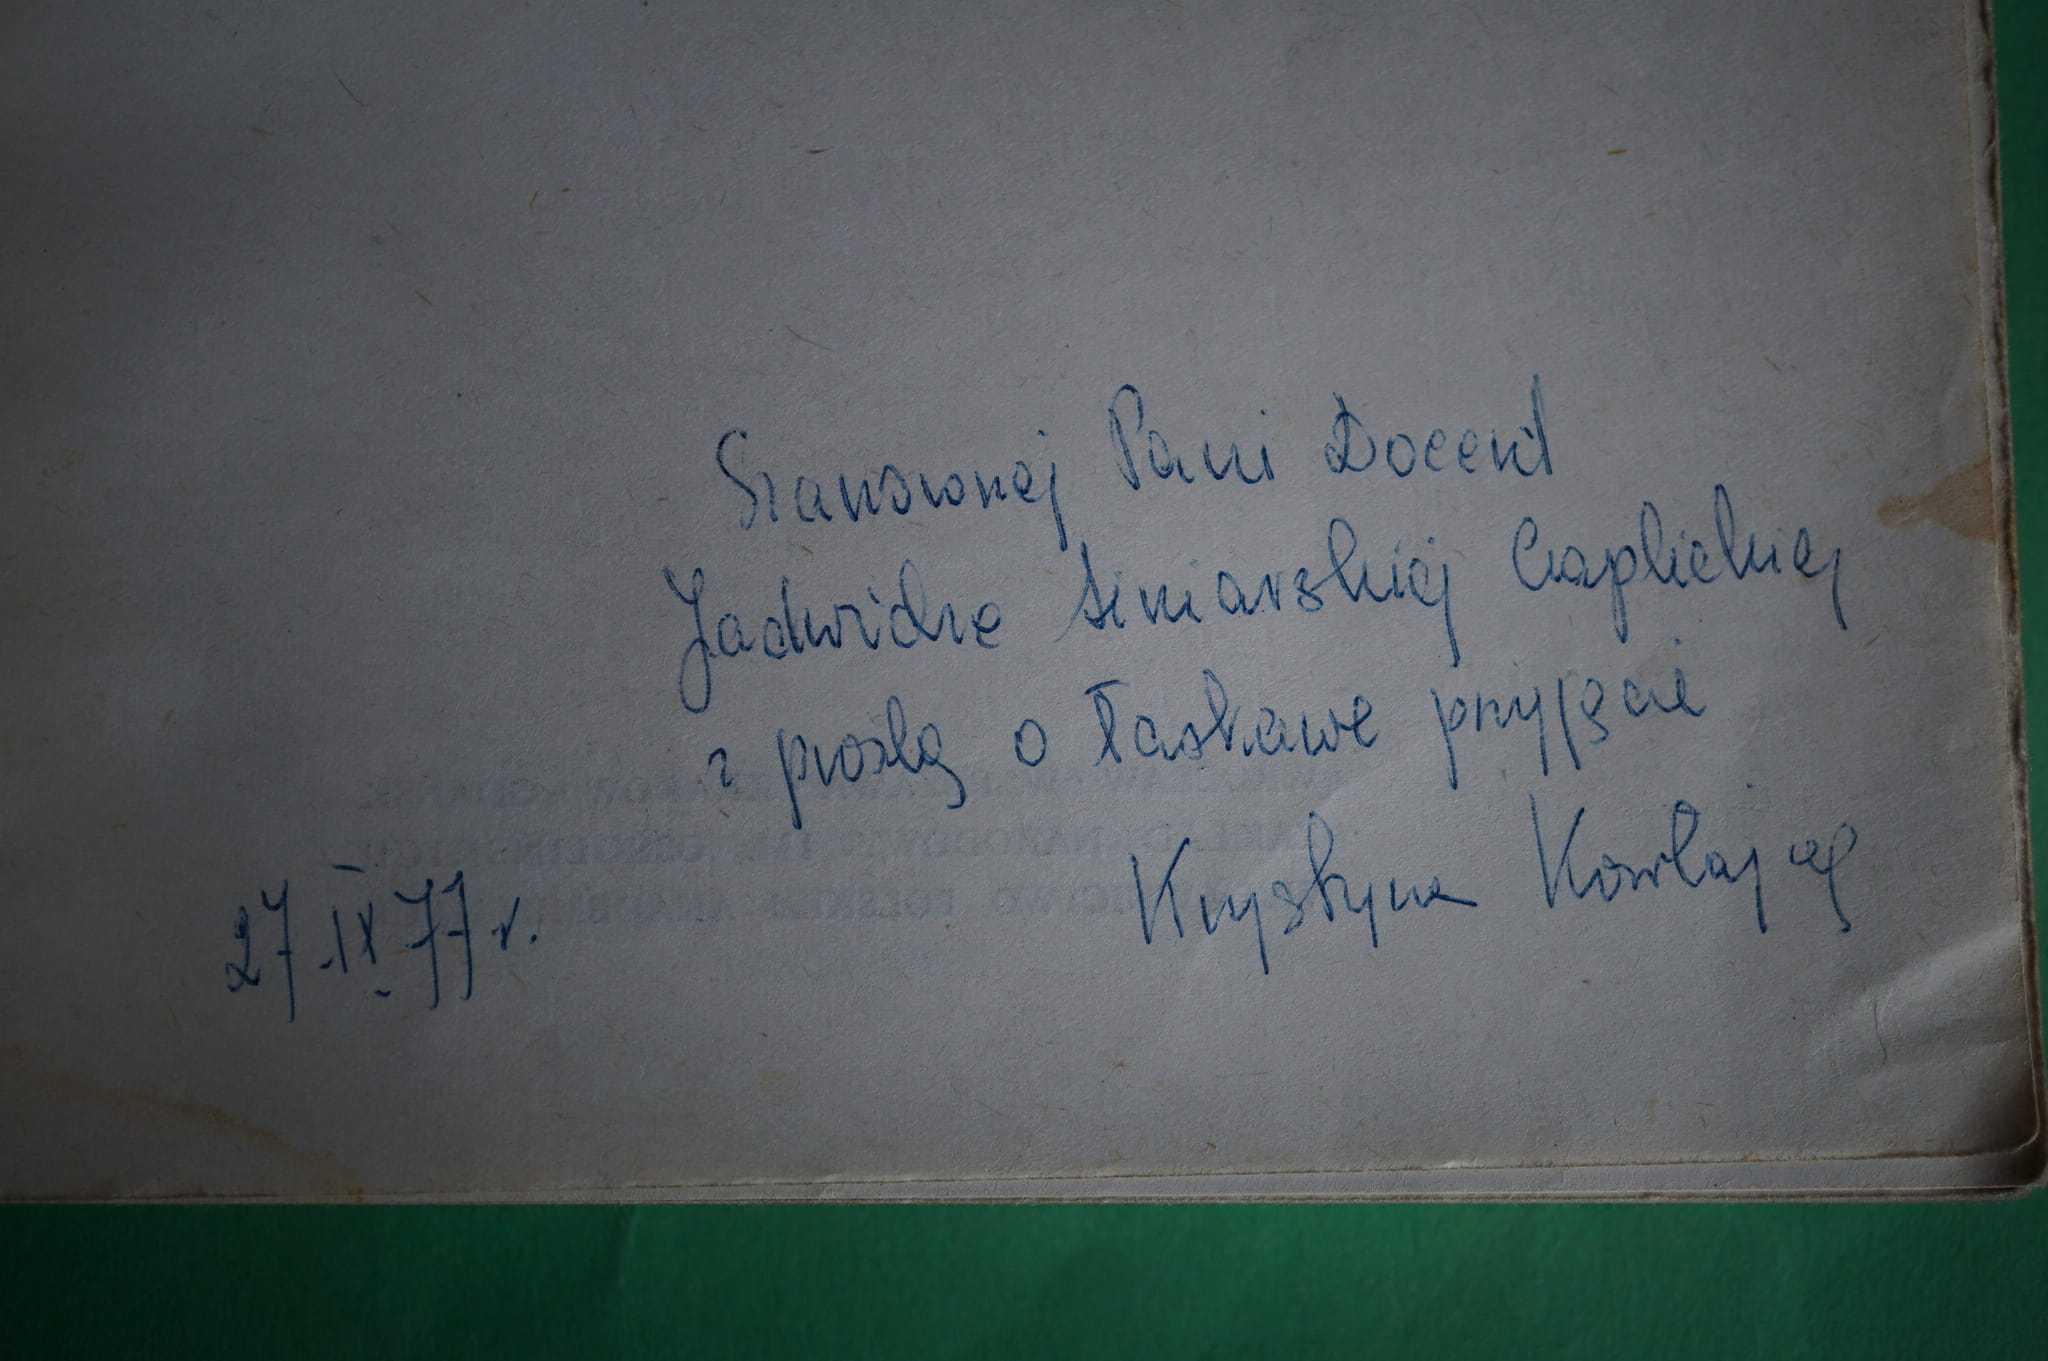 Szanownej Pani Docent
Jadwidze Siniarskiej Czaplickiej
z prośbą o łaskawe przyjęcie
Krystyna
27.IX.77 r.